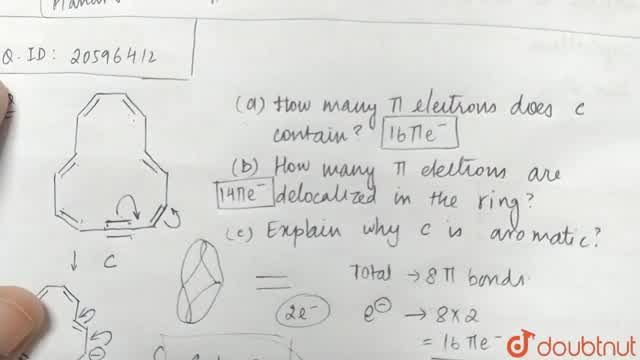 Q. ID: 20596412
(a) How many π electrons does c
contain? 16πe⁻
(b) How many π electrons are
14πe⁻ delocalized in the ring?
(c) Explain why c is aromatic?
C
Total → 8 π bonds
2e⁻
e⊖ → 8×2
= 16 πe⁻
doubtnut